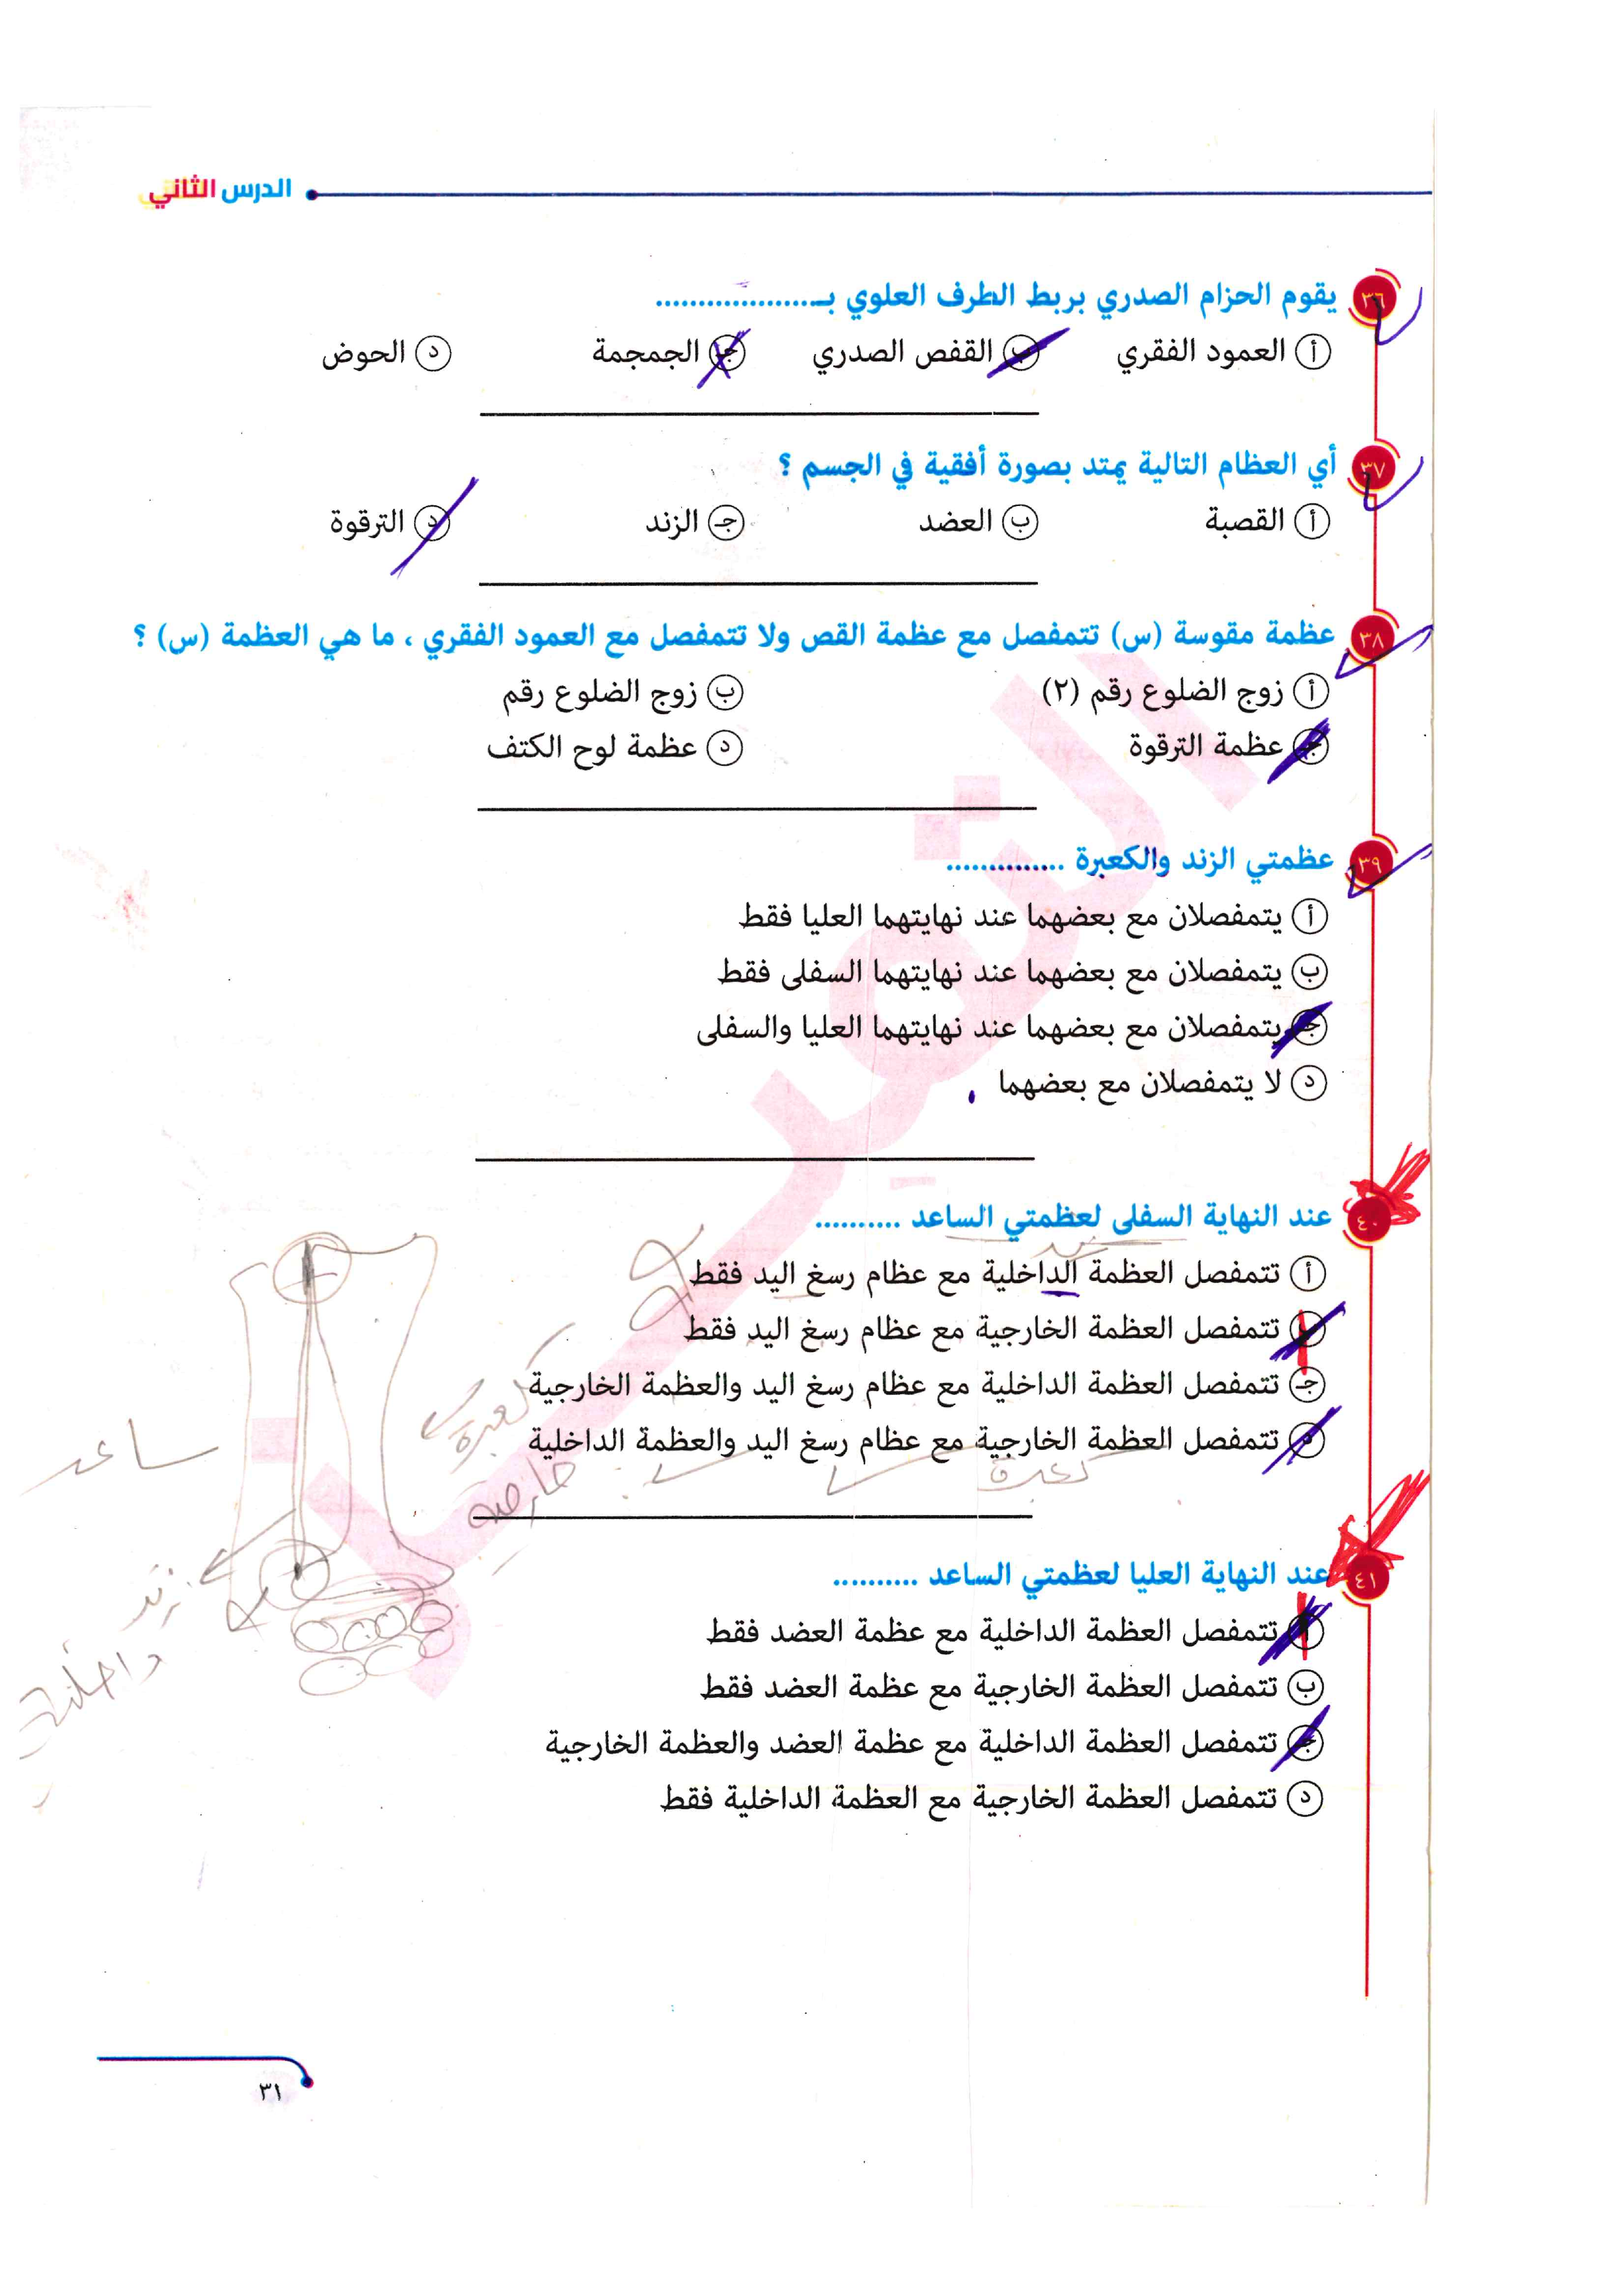 الدرس الثاني
٣٦ يقوم الحزام الصدري بربط الطرف العلوي بـ...................
أ العمود الفقري ب القفص الصدري جـ الجمجمة د الحوض
٣٧ أي العظام التالية يمتد بصورة أفقية في الجسم ؟
أ القصبة ب العضد جـ الزند د الترقوة
٣٨ عظمة مقوسة (س) تتمفصل مع عظمة القص ولا تتمفصل مع العمود الفقري ، ما هي العظمة (س) ؟
أ زوج الضلوع رقم (٢) ب زوج الضلوع رقم
جـ عظمة الترقوة د عظمة لوح الكتف
٣٩ عظمتي الزند والكعبرة ..............
أ يتمفصلان مع بعضهما عند نهايتهما العليا فقط
ب يتمفصلان مع بعضهما عند نهايتهما السفلى فقط
جـ يتمفصلان مع بعضهما عند نهايتهما العليا والسفلى
د لا يتمفصلان مع بعضهما
٤٠ عند النهاية السفلى لعظمتي الساعد ..........
أ تتمفصل العظمة الداخلية مع عظام رسغ اليد فقط
ب تتمفصل العظمة الخارجية مع عظام رسغ اليد فقط
جـ تتمفصل العظمة الداخلية مع عظام رسغ اليد والعظمة الخارجية
د تتمفصل العظمة الخارجية مع عظام رسغ اليد والعظمة الداخلية
كعبرة
كعبرة
خارجية
ساعد
زند
داخلية
٤١ عند النهاية العليا لعظمتي الساعد ..........
أ تتمفصل العظمة الداخلية مع عظمة العضد فقط
ب تتمفصل العظمة الخارجية مع عظمة العضد فقط
جـ تتمفصل العظمة الداخلية مع عظمة العضد والعظمة الخارجية
د تتمفصل العظمة الخارجية مع العظمة الداخلية فقط
٣١